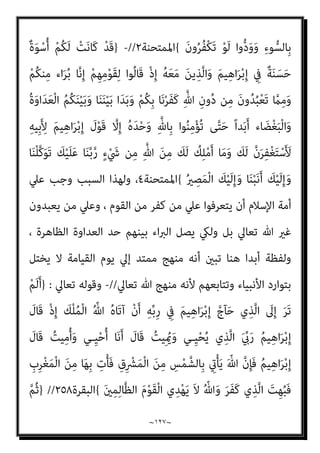 بِالسُّوءِ وَوَدُّوا لَوْ تَكْفُرُونَ} الممتحنة٢//- {قَدْ كَانَتْ لَكُمْ أُسْوَةٌ
حَسَنَةٌ فِي إِبْرَاهِيمَ وَالَّذِينَ مَعَهُ إِذْ قَالُوا لِقَوْمِهِمْ إِنَّا بُرَآءُ مِنكُمْ
وَمِمَّا تَعْبُدُونَ مِن دُونِ اللَّهِ كَفَرْنَا بِكُمْ وَبَدَا بَيْنَنَا وَبَيْنَكُمُ الْعَدَاوَةُ
وَالْبَغْضَاء أَبَداً حَتَّى تُؤْمِنُوا بِاللَّهِ وَحْدَهُ إِلَّا قَوْلَ إِبْرَاهِيمَ لِأَبِيهِ
لَأَسْتَغْفِرَنَّ لَكَ وَمَا أَمْلِكُ لَكَ مِنَ اللَّهِ مِن شَيْءٍ رَّبَّنَا عَلَيْكَ تَوَكَّلْنَا
وَإِلَيْكَ أَنَبْنَا وَإِلَيْكَ الْمَصِيرُ} الممتحنة٤، ولهذا السبب وجب علي
أمة الإسلام أن يتعرفوا علي من كفر من القوم ، وعلي من يعبدون
غير الله تعالي بل ولكي يصل البراء بينهم حد العداوة الظاهرة ،
ولفظة أبدا هنا تبين أنه منهج ممتد إلي يوم القيامة لا يختل
بتوارد الأنبياء وتتابعهم لأنه منهج الله تعالي//- وقوله تعالي : {أَلَمْ
تَرَ إِلَى الَّذِي حَآجَّ إِبْرَاهِيمَ فِي رَبِّهِ أَنْ آتَاهُ اللّهُ الْمُلْكَ إِذْ قَالَ
إِبْرَاهِيمُ رَبِّيَ الَّذِي يُحْيِـي وَيُمِيتُ قَالَ أَنَا أُحْيِـي وَأُمِيتُ قَالَ
إِبْرَاهِيمُ فَإِنَّ اللّهَ يَأْتِي بِالشَّمْسِ مِنَ الْمَشْرِقِ فَأْتِ بِهَا مِنَ الْمَغْرِبِ
فَبُهِتَ الَّذِي كَفَرَ وَاللّهُ لاَ يَهْدِي الْقَوْمَ الظَّالِمِينَ} البقرة٢٥٨// {ثُمَّ
~١٢٧~